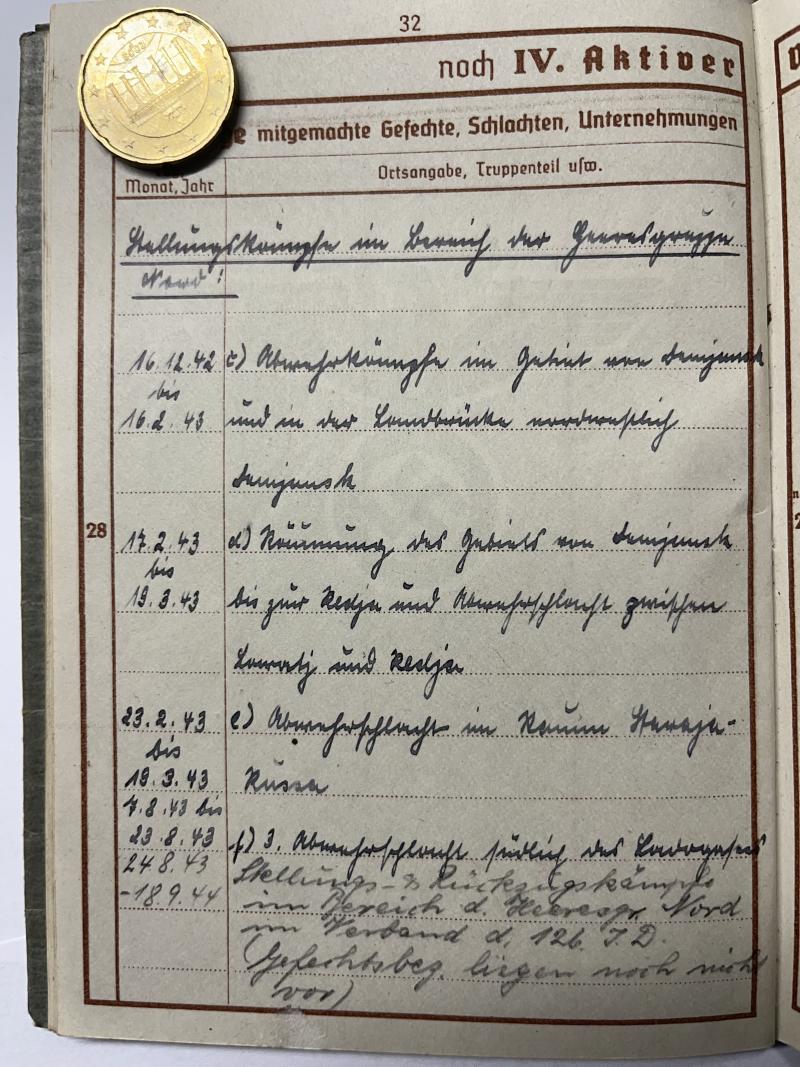 32
noch IV. Aktiver
mitgemachte Gefechte, Schlachten, Unternehmungen
Monat, Jahr
Ortsangabe, Truppenteil usw.
Stellungskämpfe im Bereich der Heeresgruppe
Nord:
16.12.42 c) Abwehrkämpfe im Gebiet von Demjansk
bis
16.2.43 und in der Landbrücke nordwestlich
Demjansk
28
17.2.43 d) Räumung des Gebiets von Demjansk
bis
19.3.43 bis zur Redja und Abwehrschlacht zwischen
Lowatj und Redja
23.2.43 e) Abwehrschlacht im Raum Staraja-
bis
19.3.43 Russa
7.8.43 bis
23.8.43 f) 3. Abwehrschlacht südlich des Ladogasees
24.8.43 Stellungs- & Rückzugskämpfe
-18.9.44 im Bereich d. Heeresgr. Nord
im Verband d. 126. I.D.
(Gefechtsbez. liegen noch nicht
vor)